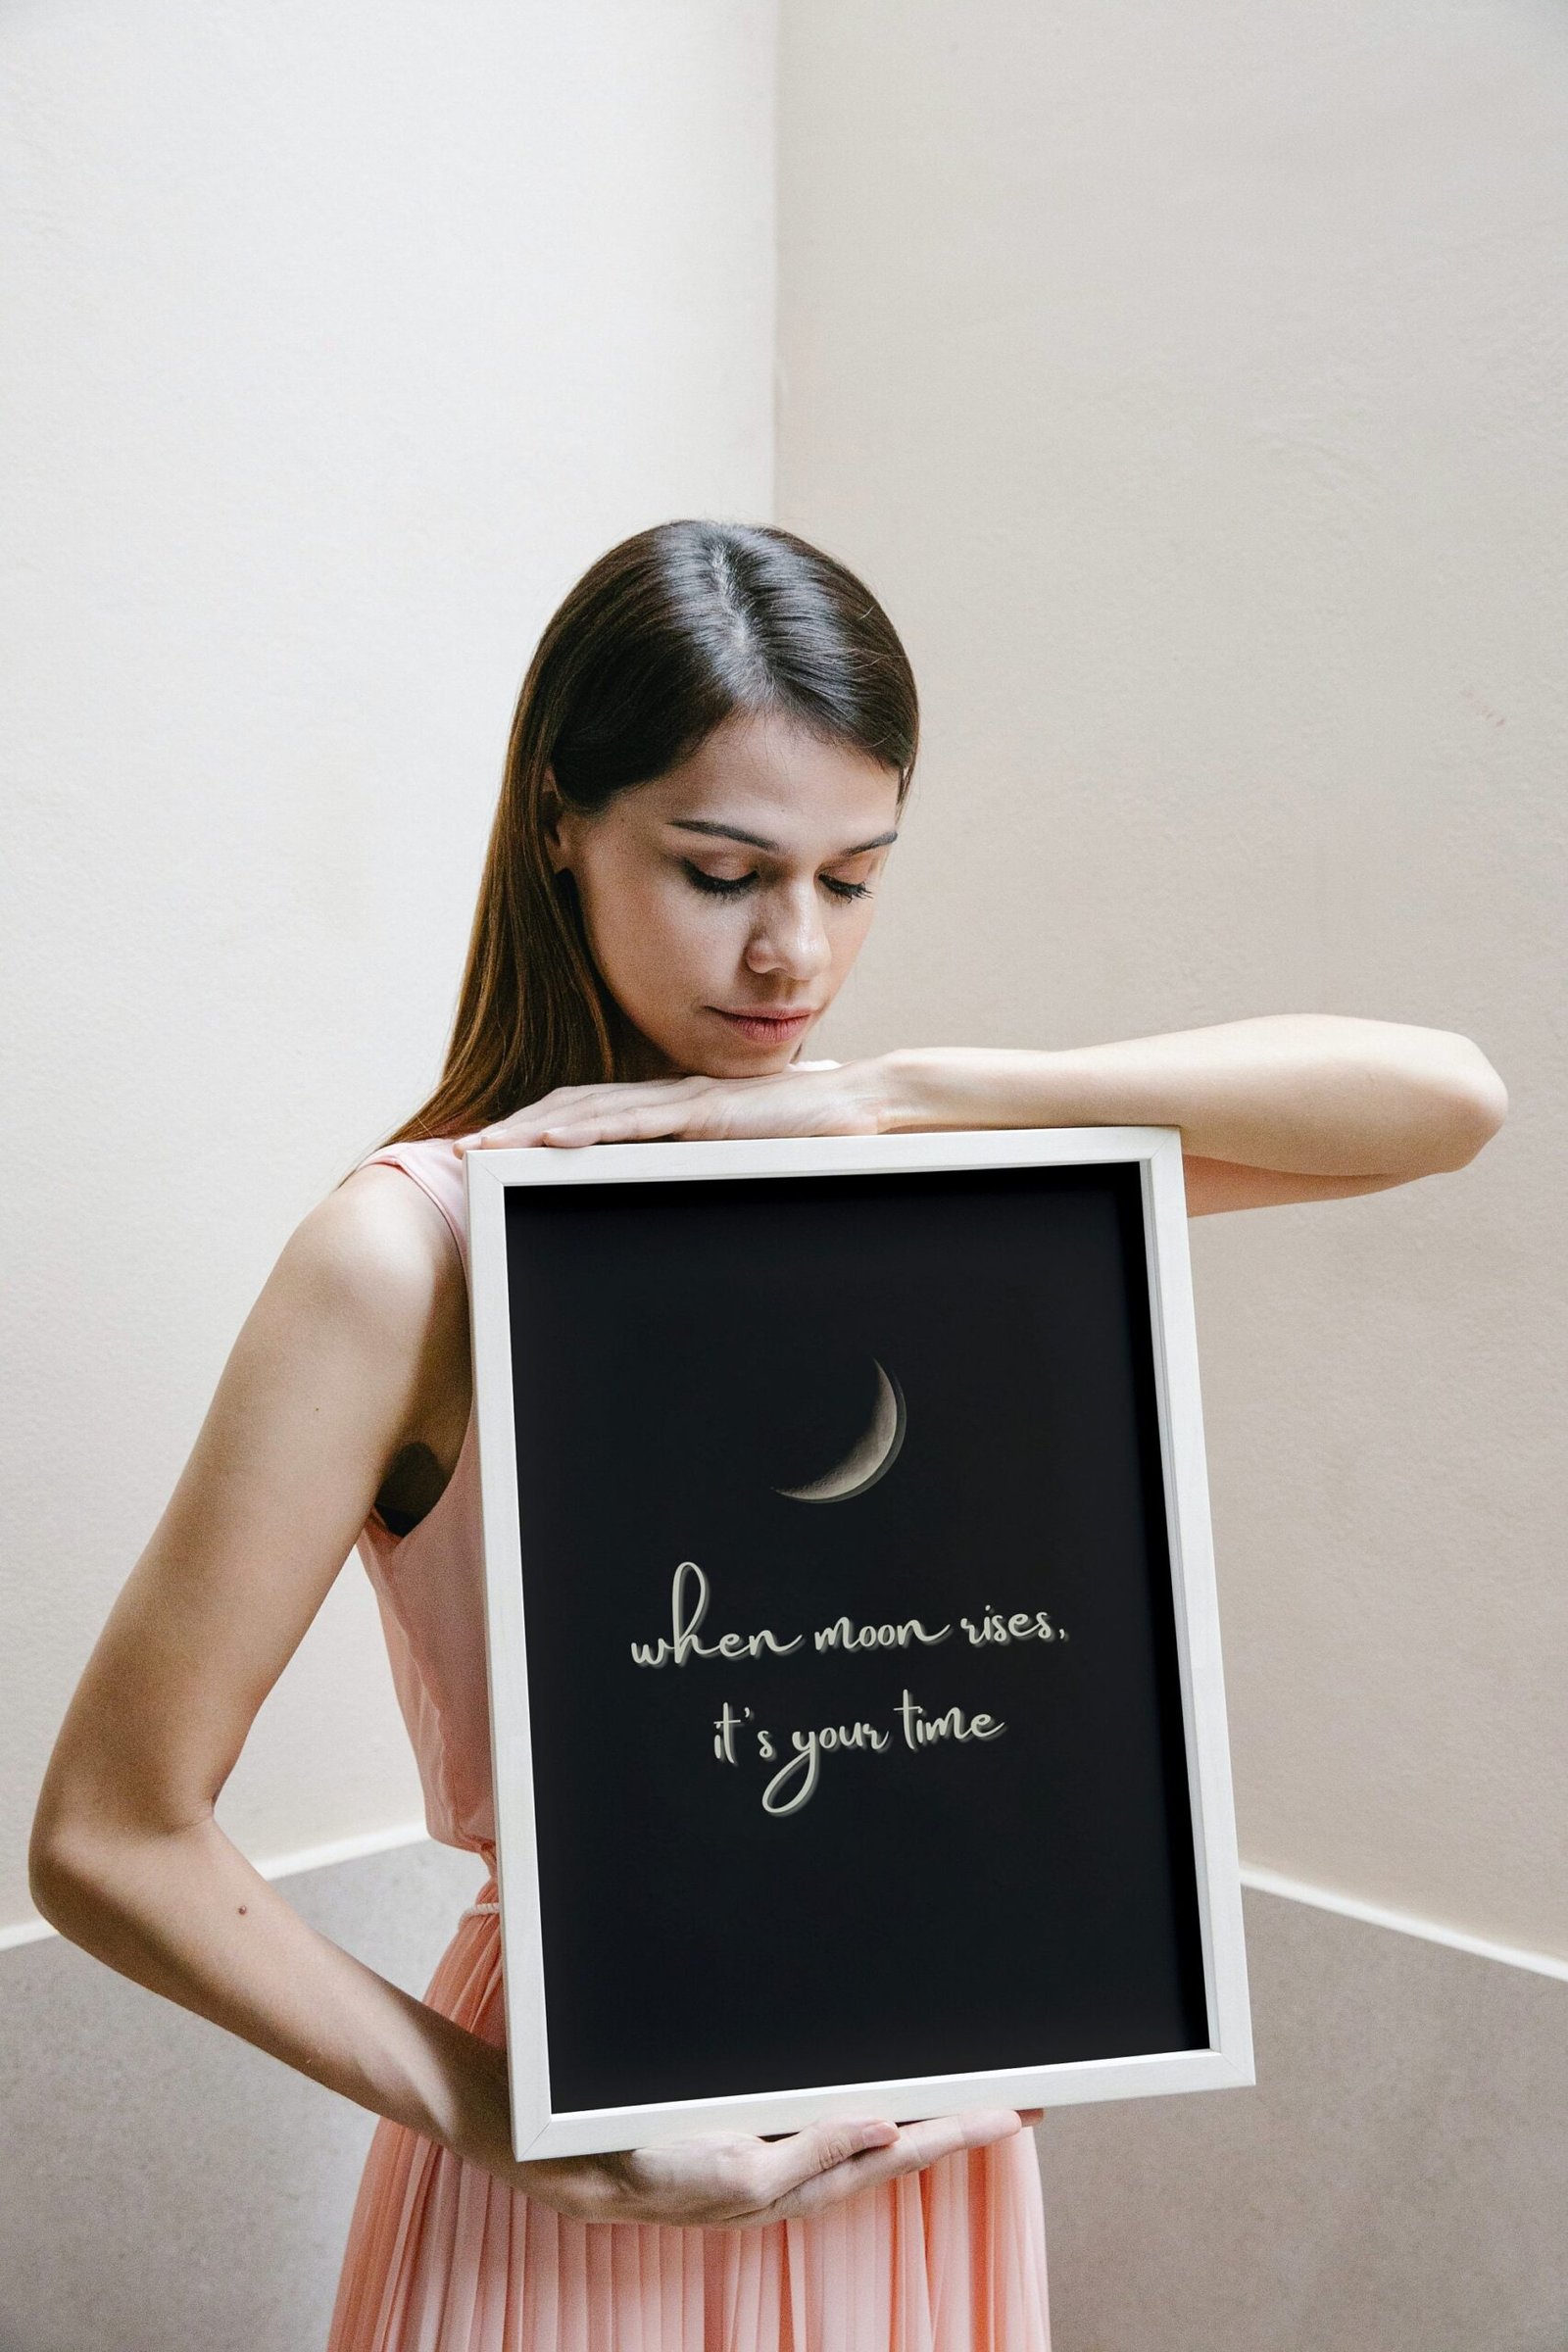 when moon rises,
it's your time